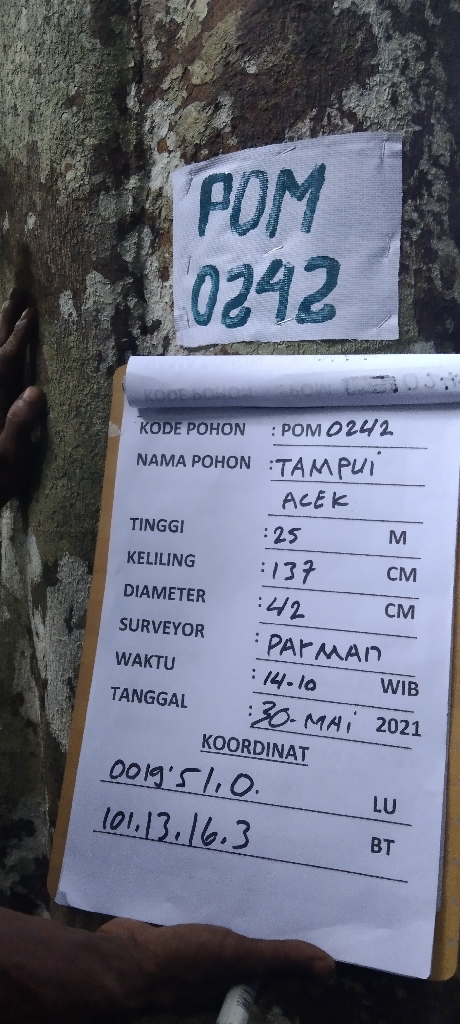 POM
0242
KODE POHON : POM 0242
NAMA POHON : TAMPUI
ACEK
TINGGI : 25 M
KELILING : 137 CM
DIAMETER : 42 CM
SURVEYOR : PARMAN
WAKTU : 14-10 WIB
TANGGAL : 30-MAI 2021
KOORDINAT
0019'51.0. LU
101.13.16.3 BT